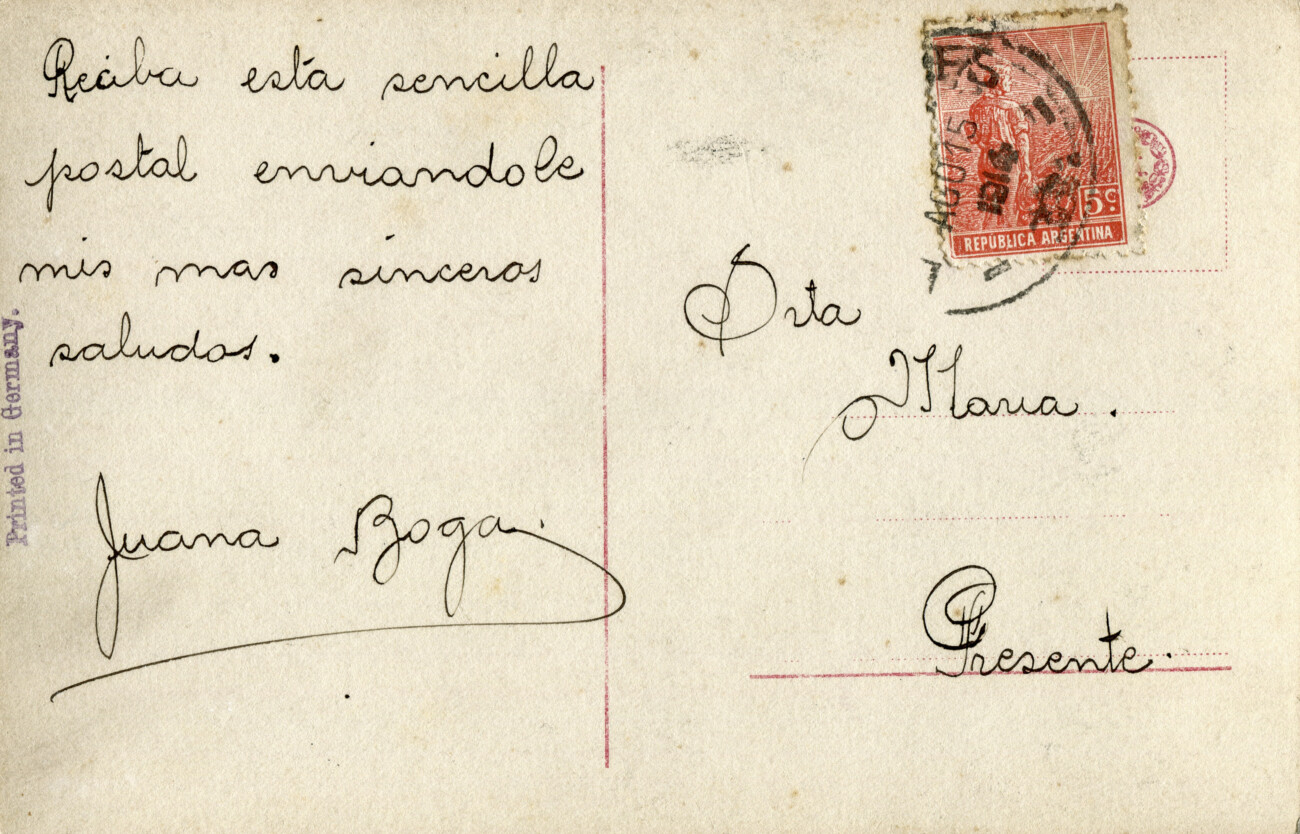 Reciba esta sencilla
postal enviandole
mis mas sinceros
saludos.
Juana Boga.
Printed in Germany.
5c.
REPUBLICA ARGENTINA
AGO 15
Srta
Maria.
Presente.